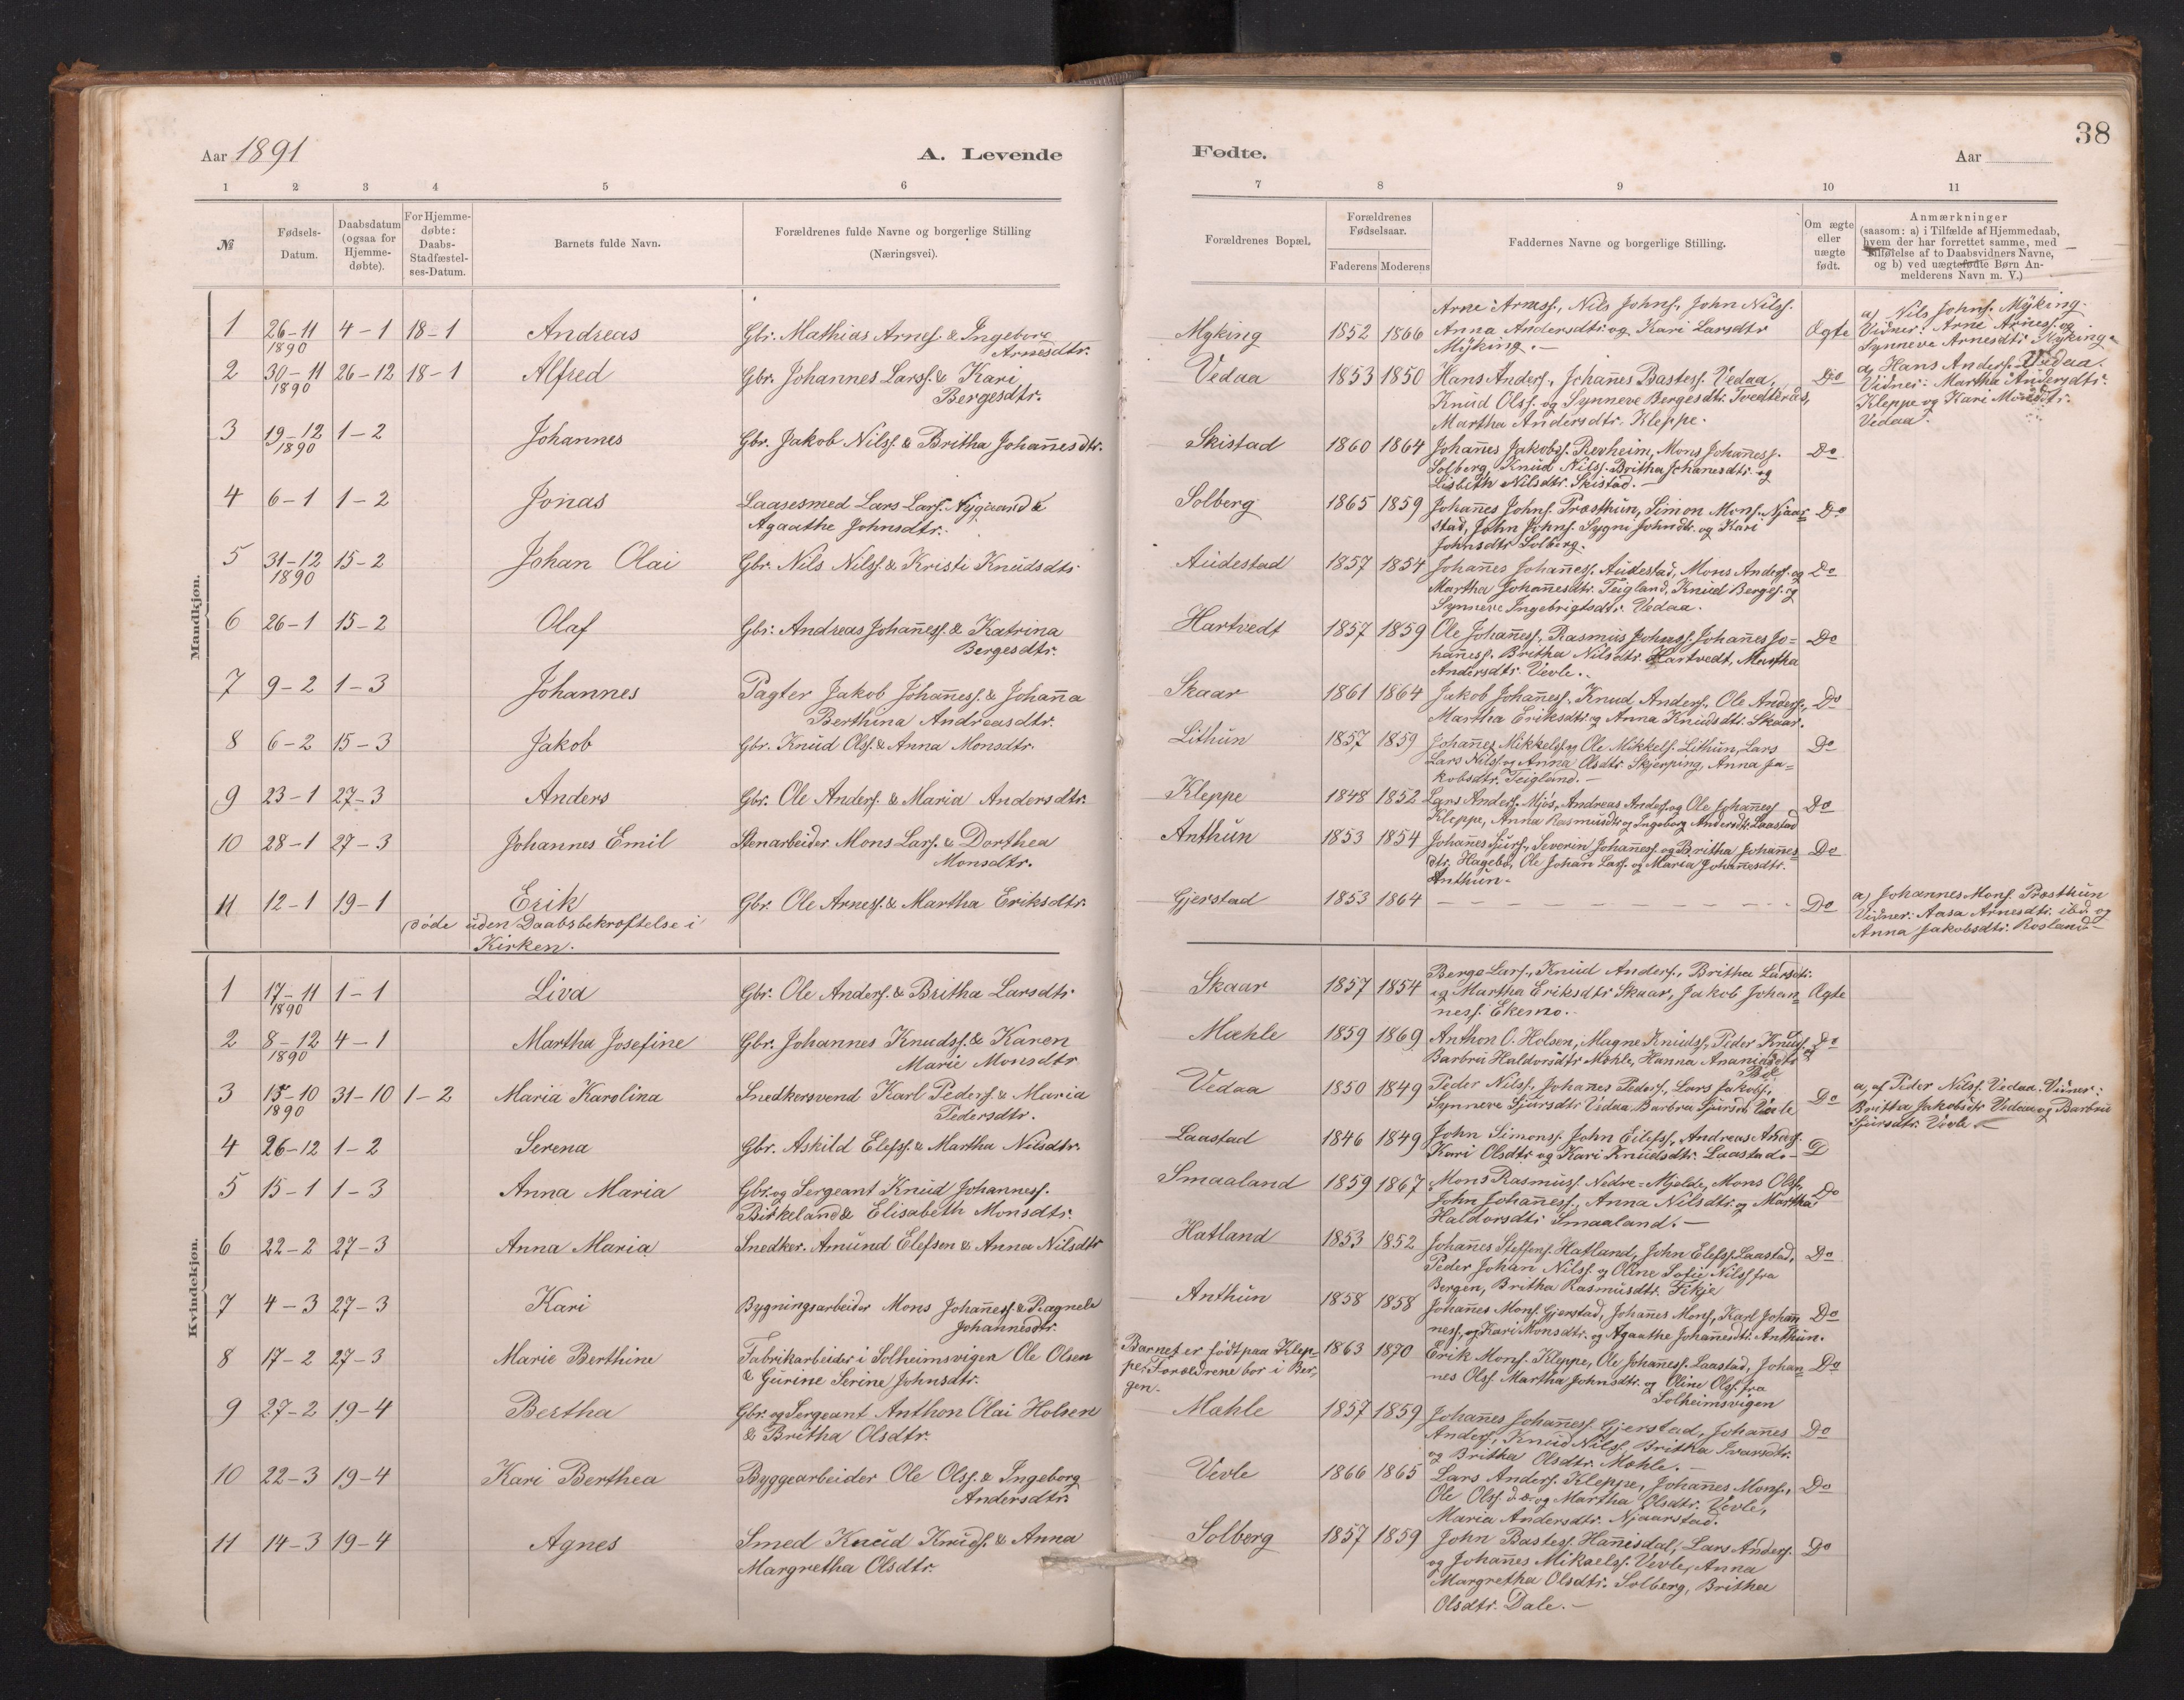 Aar 1891
A. Levende
Fødte.
Aar
38
1 2 3 4 5 6
7 8 9 10 11
№
Fødsels-
Datum.
Daabsdatum
(ogsaa for
Hjemme-
døbte).
For Hjemme-
døbte:
Daabs-
Stadfæstel-
ses-Datum.
Barnets fulde Navn.
Forældrenes fulde Navne og borgerlige Stilling
(Næringsvei).
Forældrenes Bopæl.
Forældrenes
Fødselsaar.
Faderens Moderens
Faddernes Navne og borgerlige Stilling.
Om ægte
eller
uægte
født.
Anmærkninger
(saasom: a) i Tilfælde af Hjemmedaab,
hvem der har forrettet samme, med
Tilføielse af to Daabsvidners Navne,
og b) ved uægtefødte Børn An-
melderens Navn m. V.)
Mandkjøn.
1 26-11 4-1 18-1 Andreas Gbr. Mathias Arness. & Ingeborg
1890 Arnesdtr.
Myking 1852 1866
Arne Arness., Nils Johns., John Nilss.
Anna Andersdtr. og Kari Larsdtr
Myking.-
Ægte
a) Nils Johns. Myking.
Vidner: Arne Arness. og
Synneve Arnesdtr. Myking.
2 30-11 26-12 18-1 Alfred Gbr. Johannes Larss. & Kari
1890 Bergesdtr.
Vedaa 1853 1850
Hans Anders., Johañes Bastess. Vedaa,
Knud Olss. og Synneve Bergesdtr. Tvedteraas,
Martha Andersdtr. Kleppe.
Do
a, Hans Anders. Vedaa.
Vidner: Martha Andersdtr.
Kleppe og Kari Monsdtr.
Vedaa.
3 19-12 1-2 Johannes Gbr. Jakob Nilss. & Britha Johañesdtr.
1890
Skistad 1860 1864
Johañes Jakobss. Revheim, Mons Johañess.
Solberg, Knud Nilss. Britha Johanesdtr. og
Lisbith Nilsdtr. Skistad.-
Do
4 6-1 1-2 Jonas Laasesmed Lars Lars. Nygaard &
Agaathe Johnsdtr.
Solberg 1865 1859
Johañes Johns. Træsthun, Simon Mons. Njaar=
stad, John Johns. Sygni Johndtr. og Kari
Johnsdtr Solberg.
Do
5 31-12 15-2 Johan Olai Gbr. Nils Nilss. & Kristi Knudsdtr
1890
Audestad 1857 1854
Johañes Johañess. Audestad, Mons Anders. og
Martha Johañesdtr. Teigland, Knud Berges. og
Synneve Ingebrigtsdtr. Vedaa.
Do
6 26-1 15-2 Olaf Gbr. Andreas Johañess. & Katrina
Bergesdtr.
Hartvedt 1857 1859
Ole Johañess., Rasmus Johnss. Johañes Jo=
hañess. Britha Nilsdtr. Hartvedt, Martha
Andersdtr. Vevle.
Do
7 9-2 1-3 Johannes Pagter Jakob Johañess. & Johaña
Berthina Andreasdtr.
Skaar 1861 1864
Jakob Johañess., Knud Anders., Ole Anders.,
Martha Eriksdtr. og Anna Knudsdtr. Skaar.
Do
8 6-2 15-3 Jakob Gbr. Knud Olss. & Anna Monsdtr.
Lithun 1857 1859
Johañes Mikkels. og Ole Mikkels. Lithun, Lars
Lars Nilss. og Anna Olsdtr. Skjerping, Anna Ja=
kobsdtr. Teigland.-
Do
9 23-1 27-3 Anders Gbr. Ole Anders. & Maria Andersdtr.
Kleppe 1848 1852
Lars Anders. Mjøs, Andreas Anders. og Ole Johañess
Kleppe, Anna Rasmusdtr. og Ingeborg Andersdtr. Laastad
Do
10 28-1 27-3 Johannes Emil Stenarbeider Mons Lars. & Dorthea
Monsdtr.
Anthun 1853 1854
Johañes Sjurs., Severin Johañess. og Britha Johañes=
dtr. Hagebø, Ole Johan Lars. og Maria Johañesdtr.
Anthun.
Do
11 12-1 19-1 Erik Gbr. Ole Arness. & Martha Eriksdtr.
døde uden Daabsbekræftelse i
Kirken.
Gjerstad 1853 1864
Do
a) Johannes Mons. Træsthun
Vidner: Aasa Arnesdtr. ibd. og
Anna Jakobsdtr. Rosland-
Kvindekjøn.
1 17-11 1-1 Liva Gbr. Ole Anders. & Britha Larsdtr
1890
Skaar 1857 1854
Berge Lars., Knud Anders., Britha Larsdtr.
og Martha Eriksdtr Skaar, Jakob Johan=
ness. Ekemo.
Ægte
2 8-12 4-1 Martha Josefine Gbr. Johannes Knudss. & Karen
1890 Marie Monsdtr
Mæhle 1859 1869
Anthon O. Holsen, Magne Knuds., Peder Knuds.
Barbru Haldorsdtr Mæhle, Hanna Ananiasdtr
Do
3 15-10 31-10 1-2 Maria Karolina Snedkersvend Karl Peders. & Maria
1890 Pedersdtr.
Vedaa 1850 1849
Peder Nilss., Johanes Peders., Lars Jakobs.,
Synneve Sjursdtr Vedaa Barbra Sjursdtr Vevle
Do
a, af Peder Nilss. Vedaa. Vidner:
Britha Jakobsdtr Vedaa og Barbru
Sjursdtr. Vevle
4 26-12 1-2 Serena Gbr. Askild Elefss. & Martha Nilsdtr.
Laastad 1846 1849
John Simons. John Eilefss., Andreas Anders.
Kari Olsdtr og Kari Knudsdtr. Laastad.-
D
5 15-1 1-3 Anna Maria Gbr. og Sergeant Knud Johanness.
Birkeland & Elisabeth Monsdtr.
Smaaland 1859 1867
Mons Rasmuss. Nedre=Mjelde, Mons Olss.,
John Johañess., Anna Nilsdtr. og Martha
Haldorsdtr Smaaland.-
Do
6 22-2 27-3 Anna Maria Snedker. Amund Elefsen & Anna Nilsdtr
Hatland 1853 1852
Johañes Steffens. Hatland, John Elefss. Laastad,
Peder Johan Nilss. og Oline Sofie Nilss fra
Bergen, Britha Rasmusdtr. Fikje
Do
7 4-3 27-3 Kari Bygningsarbeider Mons Johañess. & Ragnele
Johannesdtr.
Anthun 1858 1858
Johañes Mons. Gjerstad, Johañes Mons., Karl Johañ
ness., og Kari Monsdtr. og Agaathe Johañesdtr. Anthun.
Do
8 17-2 27-3 Marie Berthine Fabrikarbeider i Solheimsvigen Ole Olsen
& Gurine Serine Johnsdtr.
Barnet er født paa Klep=
pe. Forældrene bor i Ber=
gen.
1863 1870
Erik Mons. Kleppe, Ole Johañess. Laastad, Johan=
nes Olss. Martha Johnsdtr. og Oline Olss. fra
Solheimsvigen
Do
9 27-2 19-4 Bertha Gbr. og Sergeant Anthon Olai Holsen
& Britha Olsdtr.
Mæhle 1857 1859
Johañes Johañess. Gjerstad, Johañes
Anders., Knud Nilss., Britha Ivarsdtr.
og Britha Olsdtr. Mæhle.-
Do
10 22-3 19-4 Kari Berthea Byggearbeider Ole Olss. & Ingeborg
Andersdtr.
Vevle 1866 1865
Lars Anders. Kleppe, Johañes Mons.,
Ole Olss. d.æ. og Martha Olsdtr. Vevle,
Maria Andersdtr. Njaarstad.
Do
11 14-3 19-4 Agnes Smed Knud Knuds. & Anna
Margretha Olsdtr.
Solberg 1857 1859
John Bastess. Hañisdal, Lars Anders.
og Johañes Mikaels. Vevle, Anna
Margretha Olsdtr. Solberg, Britha
Olsdtr. Dale.-
Do